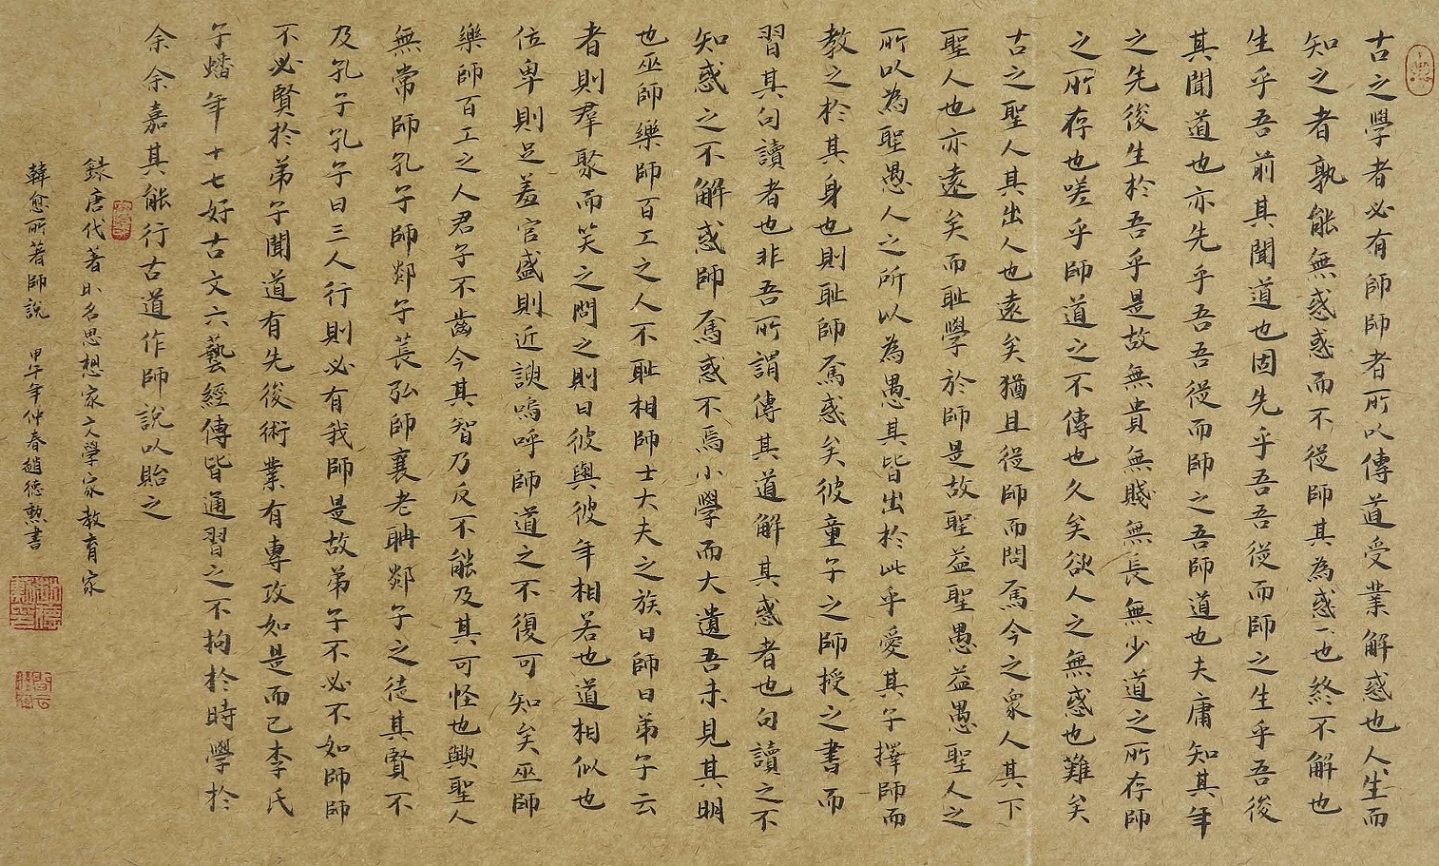 古之學者必有師師者所以傳道受業解惑也人生而
知之者孰能無惑惑而不從師其為惑也終不解也
生乎吾前其聞道也固先乎吾吾從而師之生乎吾後
其聞道也亦先乎吾吾從而師之吾師道也夫庸知其年
之先後生於吾乎是故無貴無賤無長無少道之所存師
之所存也嗟乎師道之不傳也久矣欲人之無惑也難矣
古之聖人其出人也遠矣猶且從師而問焉今之衆人其下
聖人也亦遠矣而耻學於師是故聖益聖愚益愚聖人之
所以為聖愚人之所以為愚其皆出於此乎愛其子擇師而
教之於其身也則耻師焉惑矣彼童子之師授之書而
習其句讀者也非吾所謂傳其道解其惑者也句讀之不
知惑之不解惑師焉惑不焉小學而大遺吾未見其明
也巫師樂師百工之人不耻相師士大夫之族曰師曰弟子云
者則羣聚而笑之問之則曰彼與彼年相若也道相似也
位卑則足羞官盛則近諛嗚呼師道之不復可知矣巫師
樂師百工之人君子不齒今其智乃反不能及其可怪也歟聖人
無常師孔子師郯子萇弘師襄老聃郯子之徒其賢不
及孔子孔子曰三人行則必有我師是故弟子不必不如師師
不必賢於弟子聞道有先後術業有專攻如是而已李氏
子蟠年十七好古文六藝經傳皆通習之不拘於時學於
余余嘉其能行古道作師說以貽之
錄唐代著名思想家文學家教育家
韓愈所著師說 甲午年仲春趙德勲書